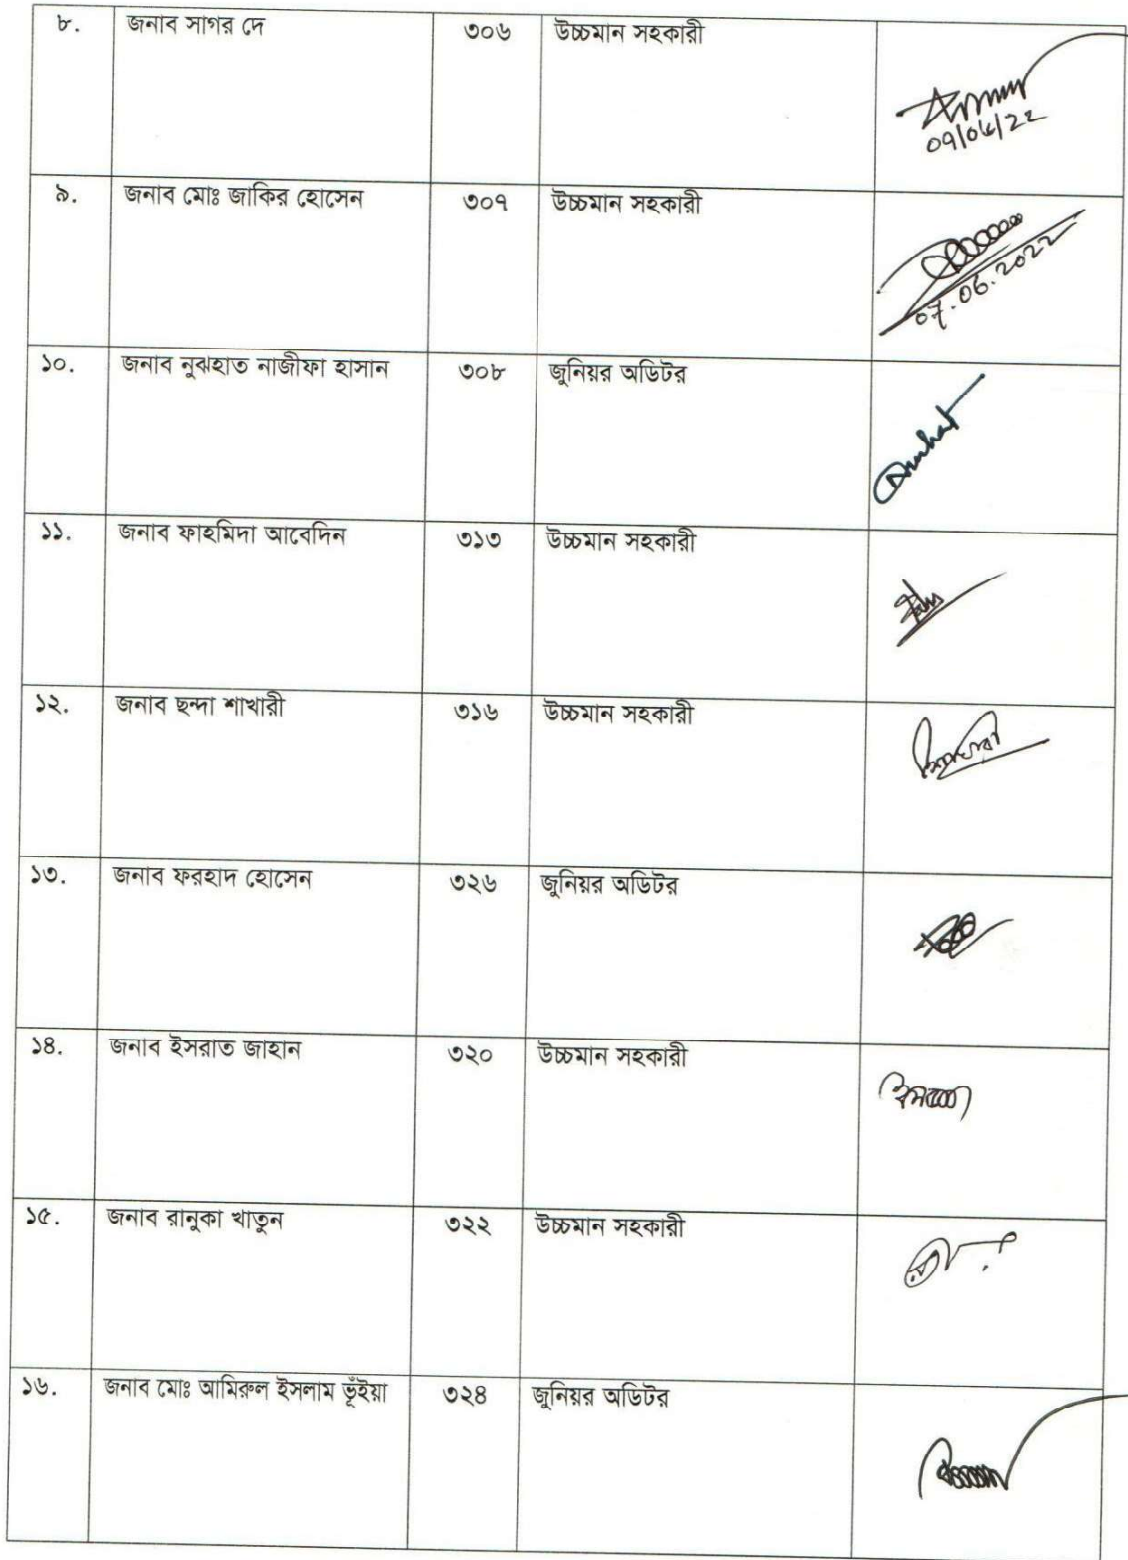 ৮. জনাব সাগর দে ৩০৬ উচ্চমান সহকারী
09/06/22
৯. জনাব মোঃ জাকির হোসেন ৩০৭ উচ্চমান সহকারী
07.06.2022
১০. জনাব নুঝহাত নাজীফা হাসান ৩০৮ জুনিয়র অডিটর
১১. জনাব ফাহমিদা আবেদিন ৩১৩ উচ্চমান সহকারী
১২. জনাব ছন্দা শাখারী ৩১৬ উচ্চমান সহকারী
১৩. জনাব ফরহাদ হোসেন ৩২৬ জুনিয়র অডিটর
১৪. জনাব ইসরাত জাহান ৩২০ উচ্চমান সহকারী
১৫. জনাব রানুকা খাতুন ৩২২ উচ্চমান সহকারী
১৬. জনাব মোঃ আমিরুল ইসলাম ভূঁইয়া ৩২৪ জুনিয়র অডিটর